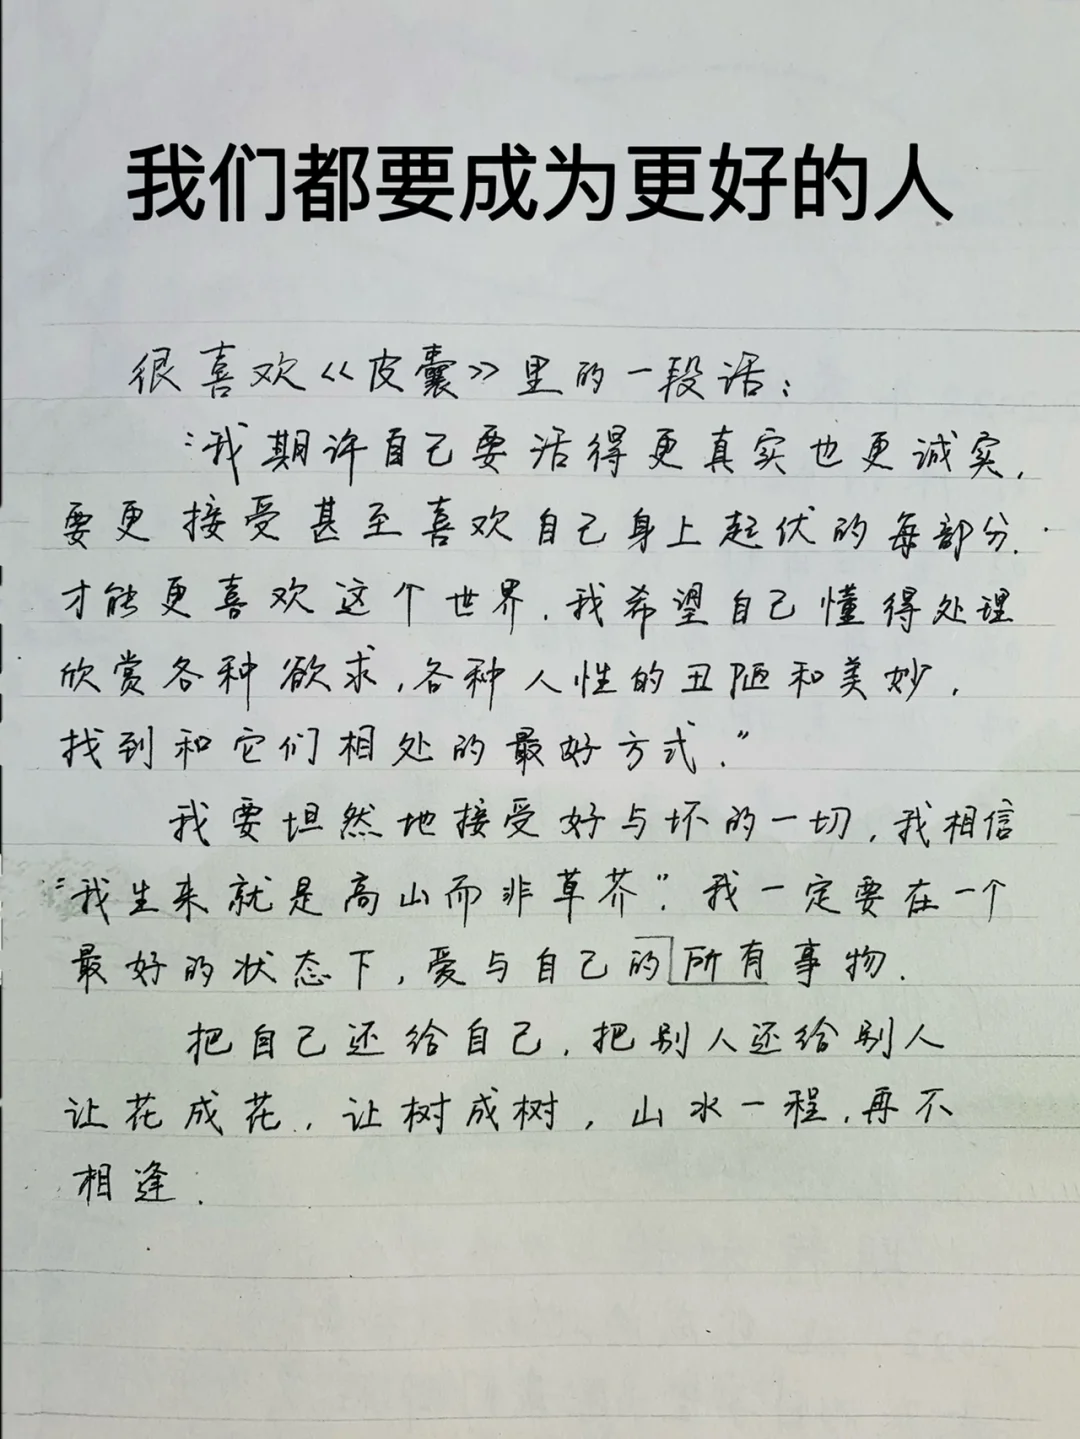 我们都要成为更好的人
很喜欢《皮囊》里的一段话：
“我期许自己要活得更真实也更诚实，
要更接受甚至喜欢自己身上起伏的每部分．
才能更喜欢这个世界．我希望自己懂得处理
欣赏各种欲求，各种人性的丑陋和美妙，
找到和它们相处的最好方式．”
我要坦然地接受好与坏的一切，我相信
“我生来就是高山而非草芥”．我一定要在一个
最好的状态下，爱与自己的所有事物．
把自己还给自己，把别人还给别人
让花成花，让树成树，山水一程，再不
相逢．